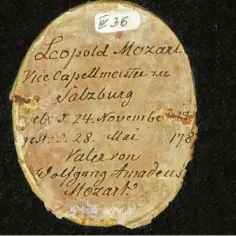 III 36
Leopold Mozart
Vice Capellmeister zu
Salzburg
geb: d. 24. Novembe
gest: d. 28. Mai 178
Vater von
Wolfgang Amadeus
Mozart.